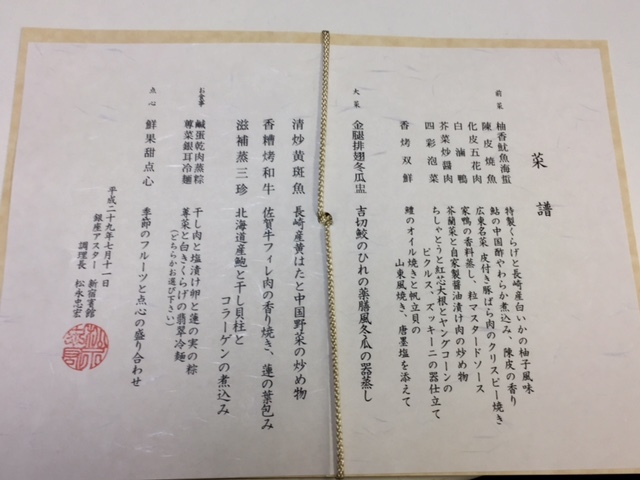 菜譜
前菜
柚香魷魚海蜇 特製くらげと長崎産白いかの柚子風味
陳皮燒魚 鮎の中国酢やわらか煮込み、陳皮の香り
化皮五花肉 広東名菜 皮付き豚ばら肉のクリスピー焼き
粒マスタードソース
白滷鴨 家鴨の香料蒸し
芥菜炒醤肉 芥蘭菜と自家製醤油漬け肉の炒め物
四彩泡菜 ちしゃとうと紅芯大根とヤングコーンの
ピクルス、ズッキーニの器仕立て
香烤双鮮 鱧のオイル焼きと帆立貝の
山東風焼き、唐墨塩を添えて
大菜
金腿排翅冬瓜盅 吉切鮫のひれの薬膳風冬瓜の器蒸し
清炒黄斑魚 長崎産黄はたと中国野菜の炒め物
香糟烤和牛 佐賀牛フィレ肉の香り焼き、蓮の葉包み
滋補蒸三珍 北海道産鮑と干し貝柱と
コラーゲンの煮込み
お食事
鹹蛋乾肉蒸粽 干し肉と塩漬け卵と蓮の実の粽
蓴菜銀耳冷麺 蓴菜と白きくらげの翡翠冷麺
(どちらかお選び下さい)
点心
鮮果甜点心 季節のフルーツと点心の盛り合わせ
平成二十九年七月十一日
銀座アスター 新宿賓館
調理長 松永忠宏